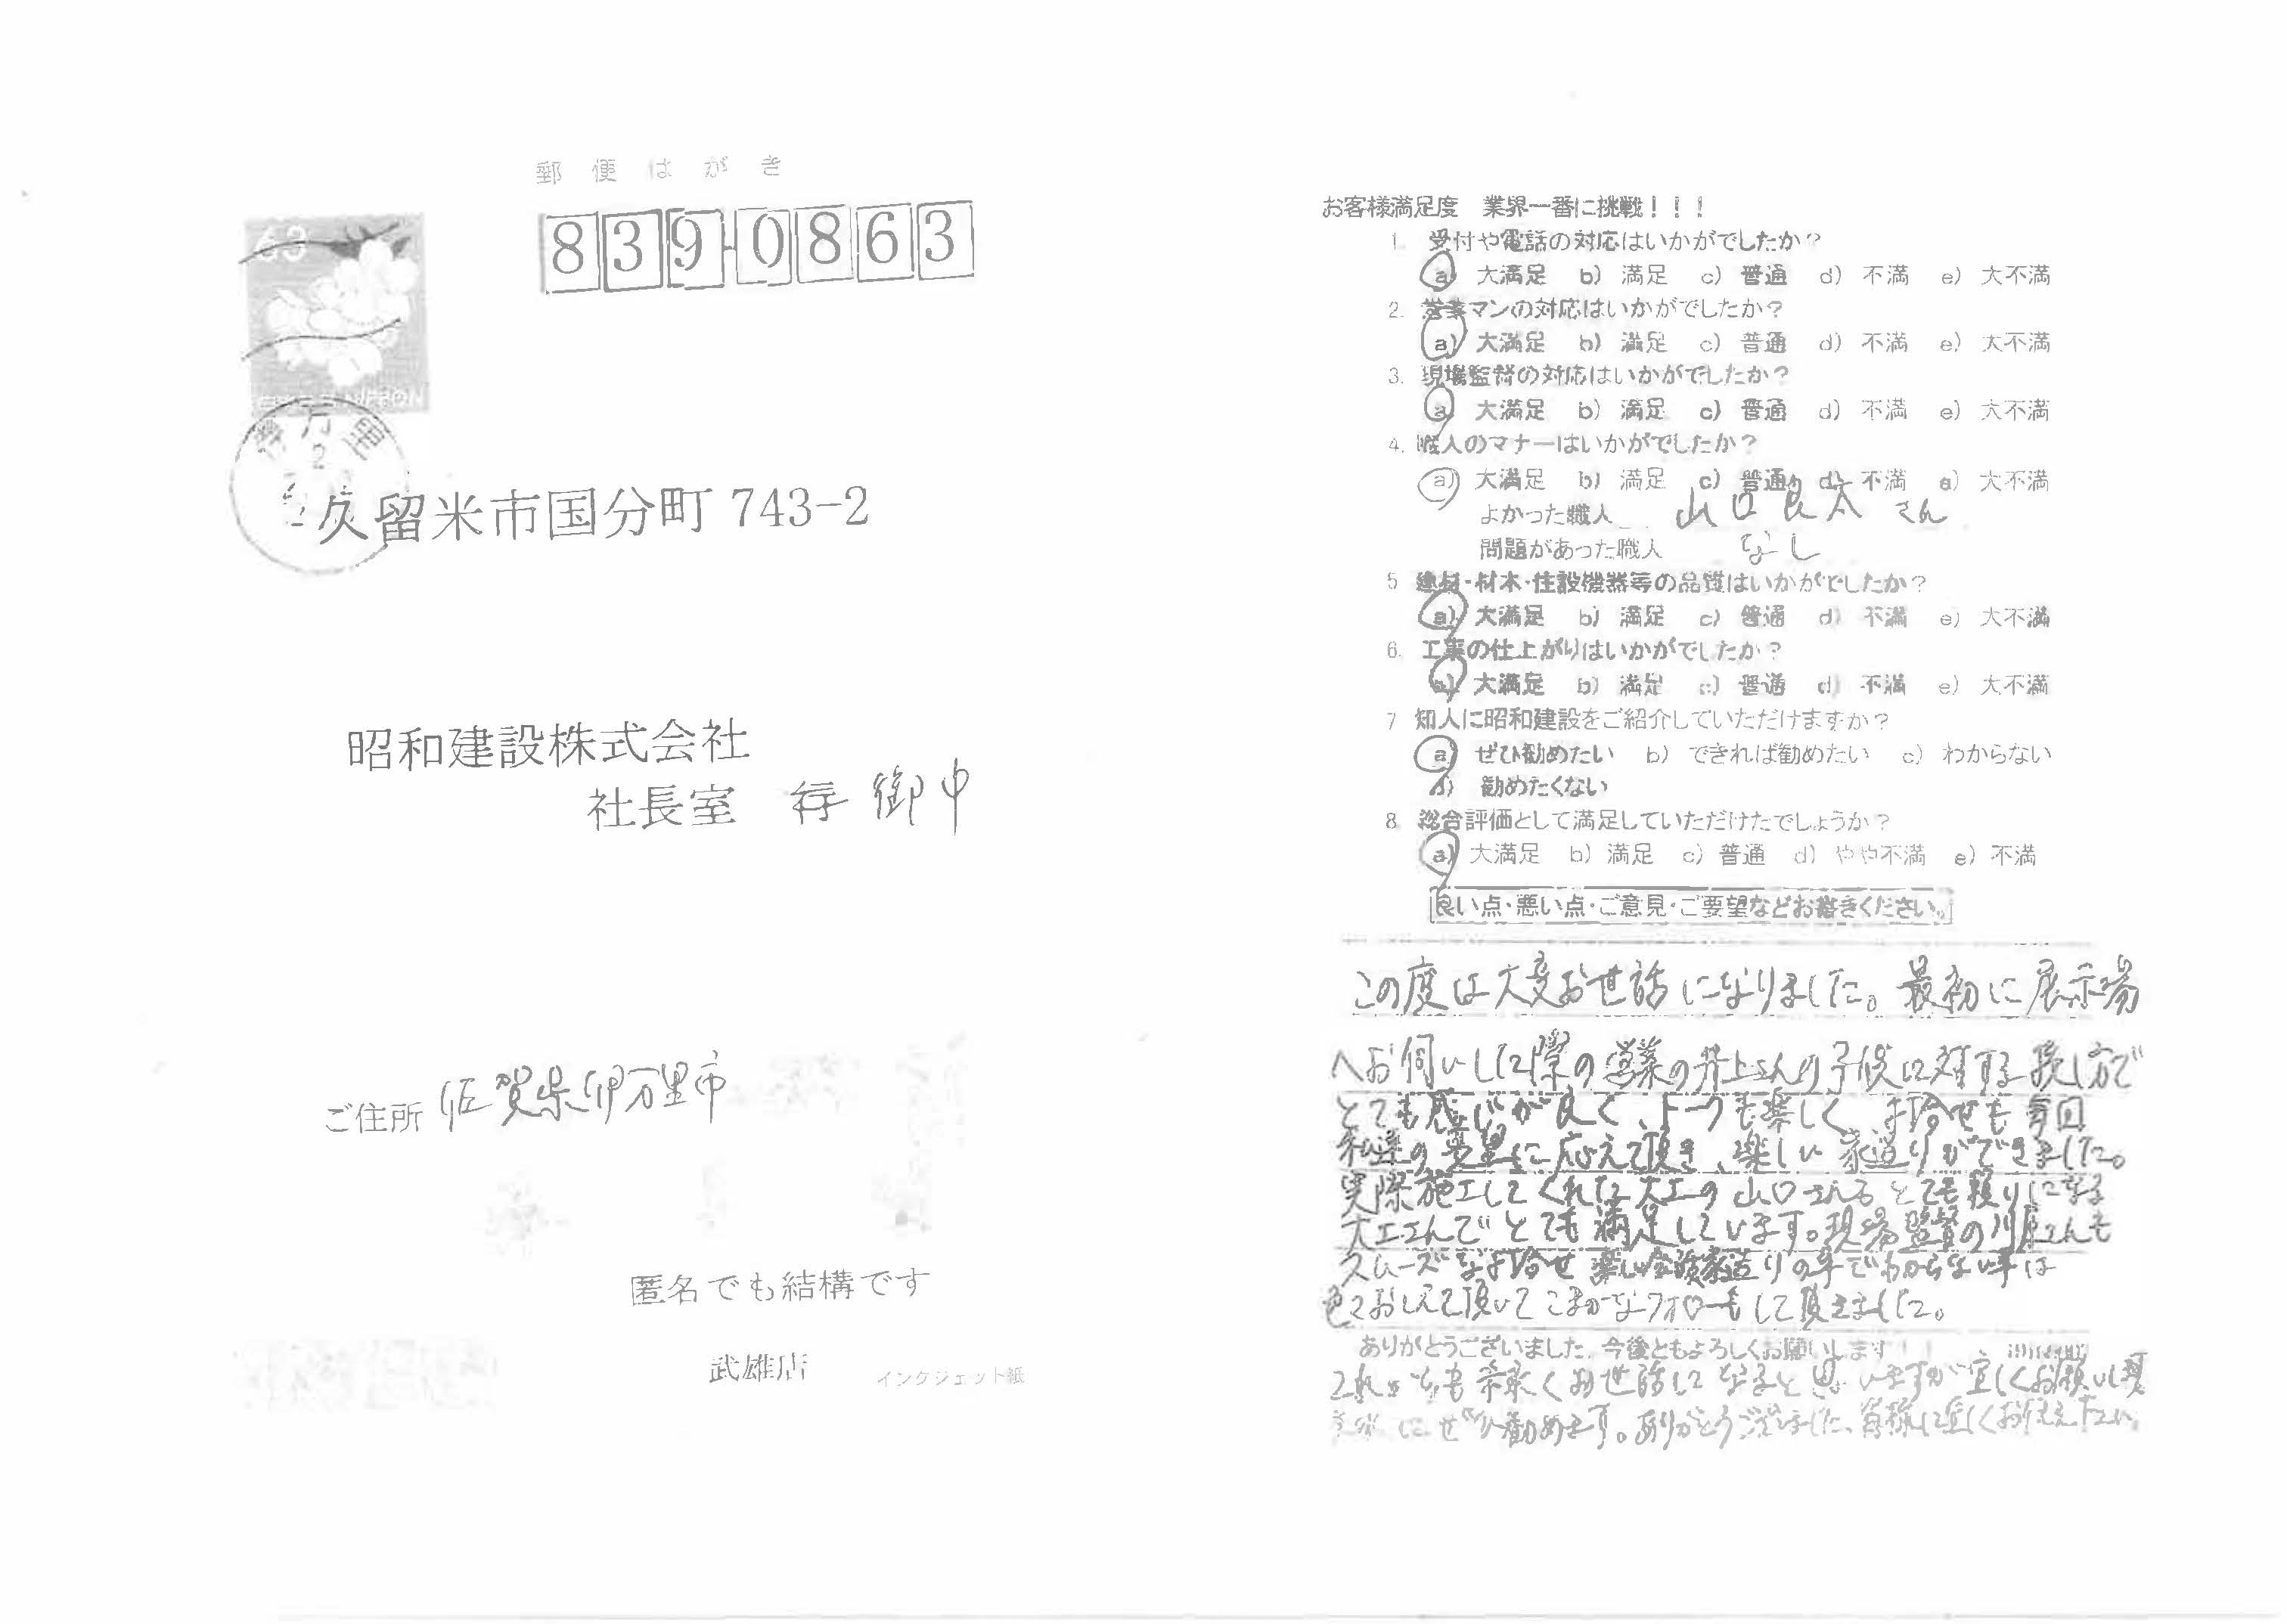 郵便はがき
63
NIPPON
839-0863
伊万里
久留米市国分町 743-2
昭和建設株式会社
社長室 行 御中
ご住所 佐賀県伊万里市
匿名でも結構です
武雄店
インクジェット紙
お客様満足度 業界一番に挑戦！！！
1. 受付や電話の対応はいかがでしたか？
a) 大満足 b) 満足 c) 普通 d) 不満 e) 大不満
2. 営業マンの対応はいかがでしたか？
a) 大満足 b) 満足 c) 普通 d) 不満 e) 大不満
3. 現場監督の対応はいかがでしたか？
a) 大満足 b) 満足 c) 普通 d) 不満 e) 大不満
4. 職人のマナーはいかがでしたか？
a) 大満足 b) 満足 c) 普通 d) 不満 e) 大不満
よかった職人 山口良太さん
問題があった職人 なし
5 建材・材木・住設機器等の品質はいかがでしたか？
a) 大満足 b) 満足 c) 普通 d) 不満 e) 大不満
6. 工事の仕上がりはいかがでしたか？
a) 大満足 b) 満足 c) 普通 d) 不満 e) 大不満
7 知人に昭和建設をご紹介していただけますか？
a) ぜひ勧めたい b) できれば勧めたい c) わからない
d) 勧めたくない
8. 総合評価として満足していただけたでしょうか？
a) 大満足 b) 満足 c) 普通 d) やや不満 e) 不満
良い点・悪い点・ご意見・ご要望などお書きください。
この度は大変お世話になりました。最初に展示場
へお伺いした際の営業の井上さんの子供に対する接し方で
とても感じが良く、トークも楽しく 打合せも毎回
私達の要望に応えて頂き、楽しい家造りができました。
実際施工してくれた大工の山口さんもとても頼りになる
大工さんでとても満足しています。現場監督の川原さんも
スムーズな打合せ 家造りの事でわからない事は
色々おしえて頂いてこまかなフォローもして頂きました。
ありがとうございました。今後ともよろしくお願いします！！
これからも末永くお世話になると思いますが宜しくお願いします
にぜひ勧めます。ありがとうございました、皆様に宜しくお伝え下さい。